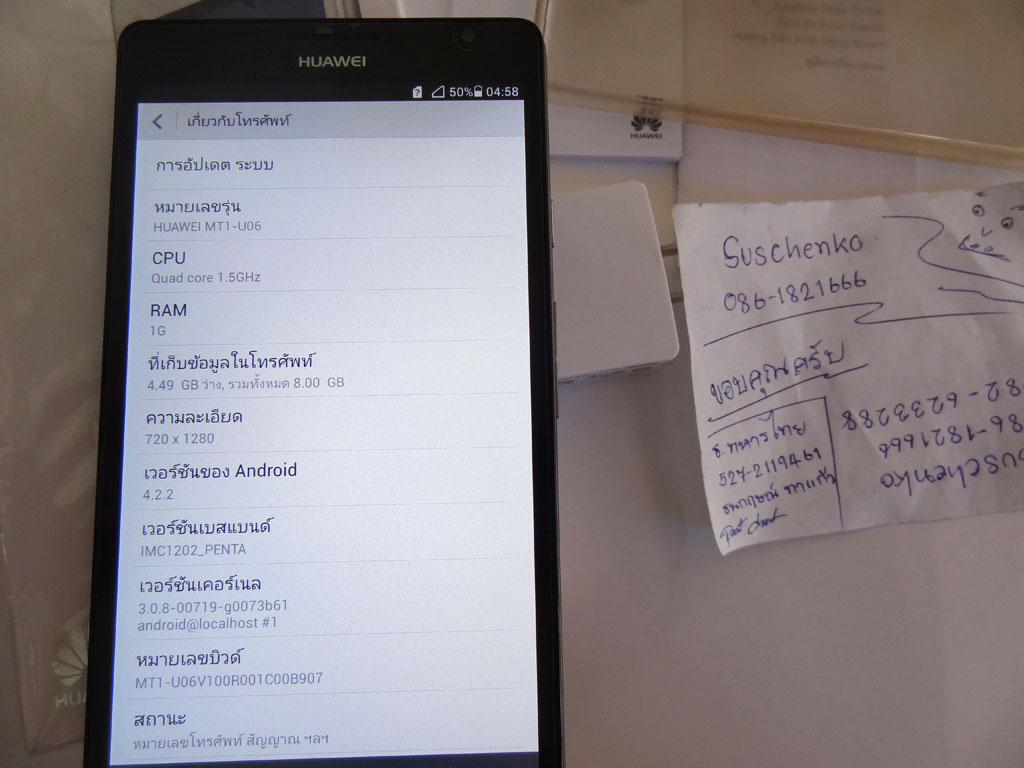 HUAWEI
50% 04:58
เกี่ยวกับโทรศัพท์
การอัปเดต ระบบ
หมายเลขรุ่น
HUAWEI MT1-U06
CPU
Quad core 1.5GHz
RAM
1G
ที่เก็บข้อมูลในโทรศัพท์
4.49 GB ว่าง, รวมทั้งหมด 8.00 GB
ความละเอียด
720 x 1280
เวอร์ชันของ Android
4.2.2
เวอร์ชันเบสแบนด์
IMC1202_PENTA
เวอร์ชันเคอร์เนล
3.0.8-00719-g0073b61
android@localhost #1
หมายเลขบิวด์
MT1-U06V100R001C00B907
สถานะ
หมายเลขโทรศัพท์ สัญญาณ ฯลฯ
HUAWEI
Hướng Dẫn Khởi Động Nhanh
Suschenko
086-1821666
ขอบคุณครับ
ธ.ทหารไทย
527-2119461
82-6233288
86-1821666
suschenko